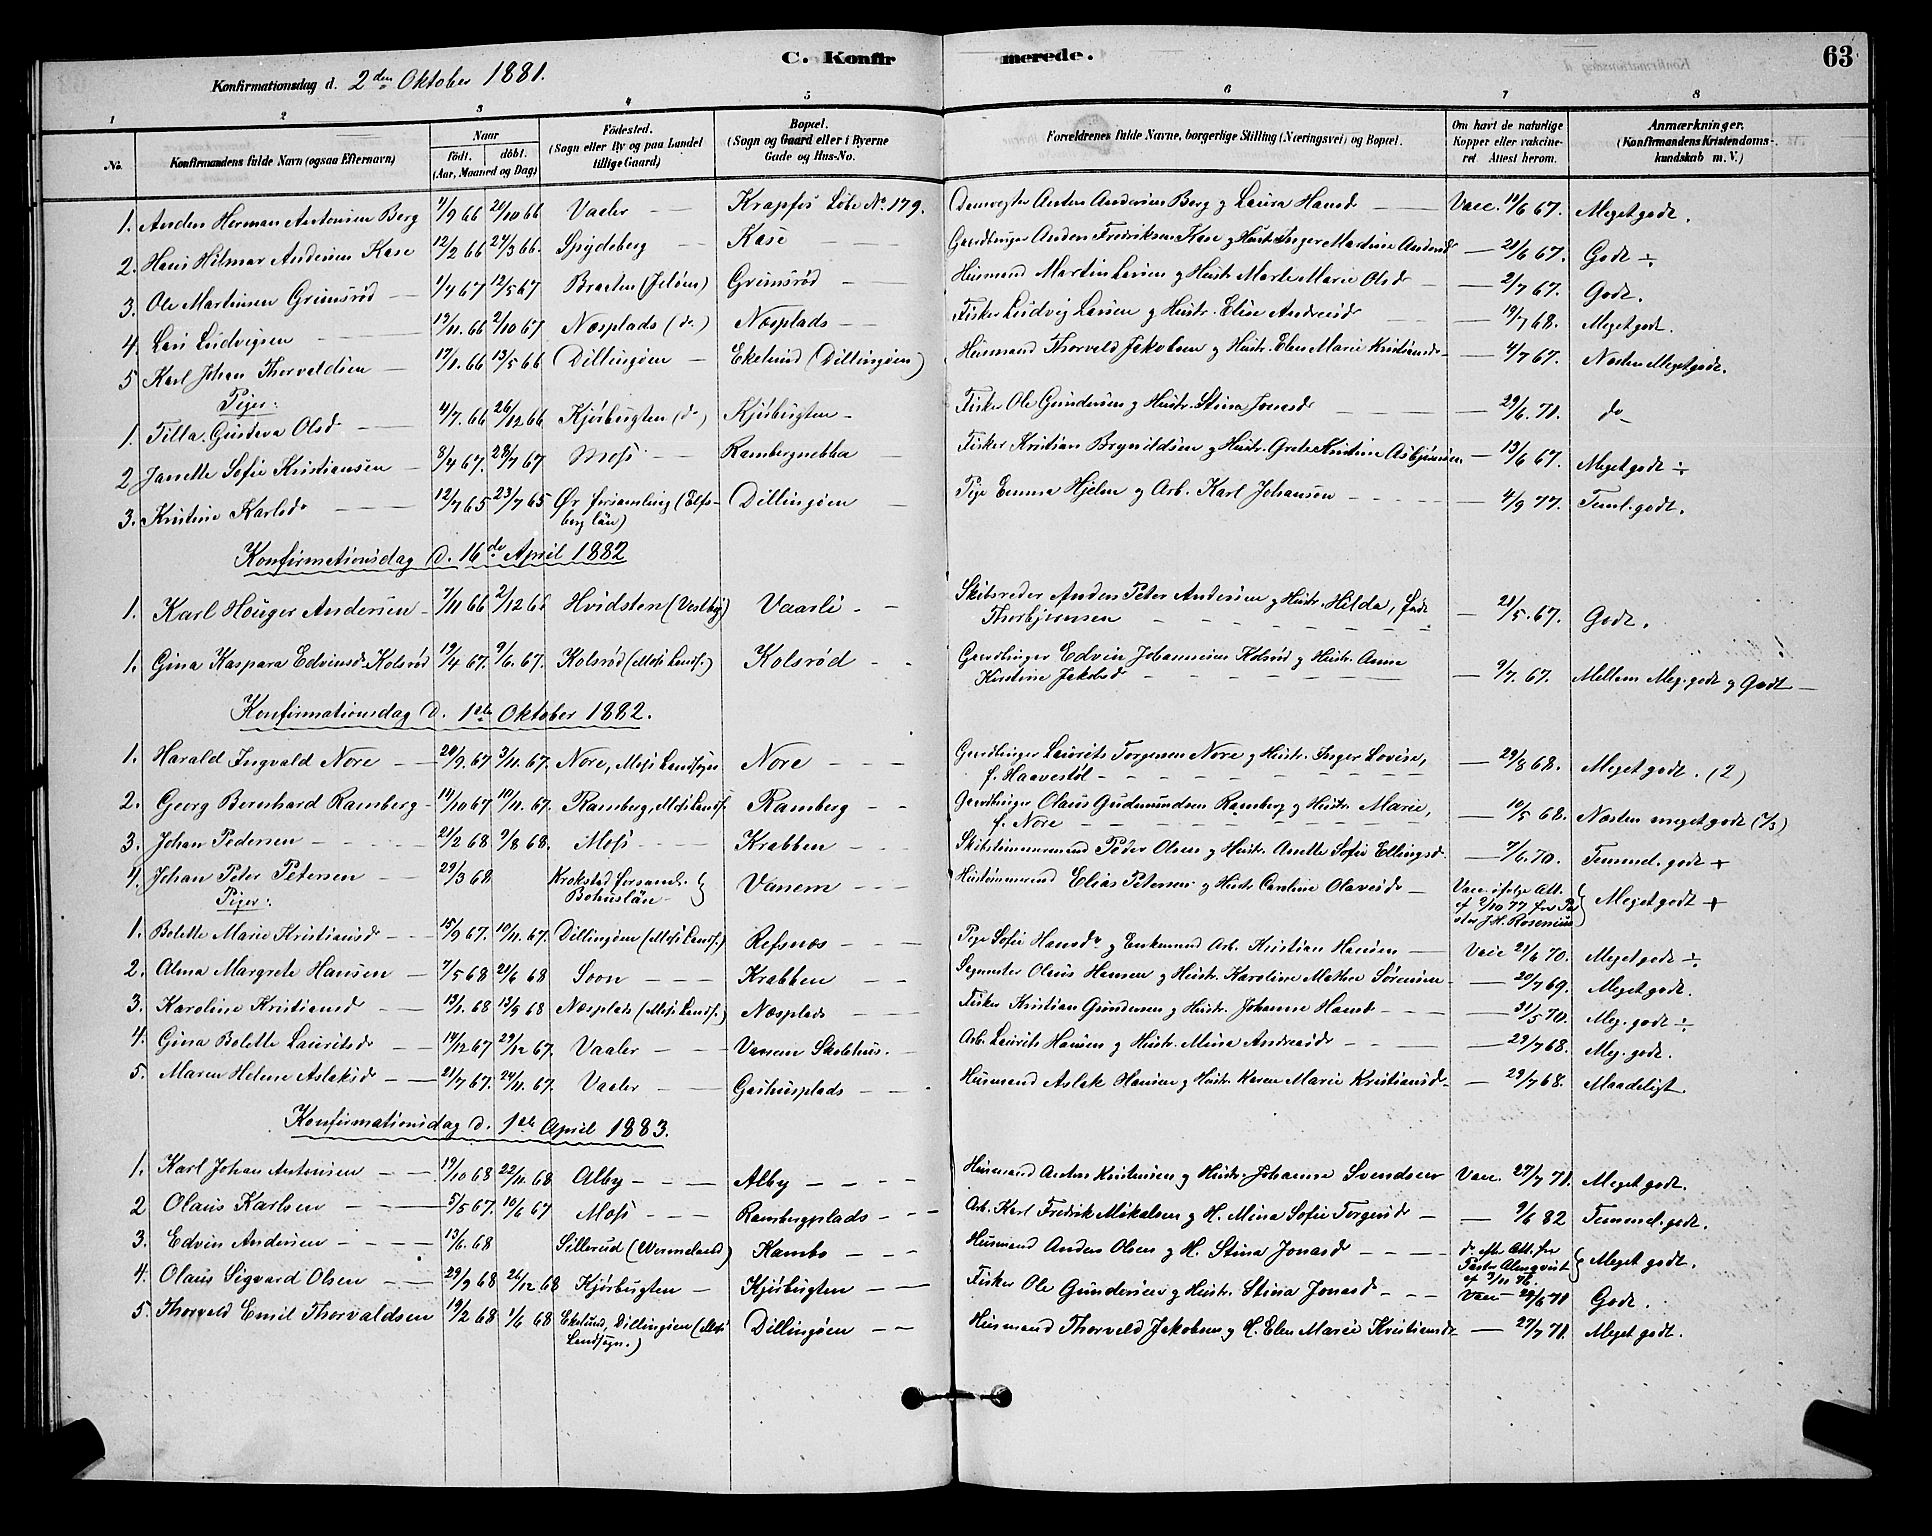 C. Konfirmerede.
63
Konfirmationsdag d. 2den Oktober 1881.
1 2 3 4 5 6 7 8
No. Konfirmandens fulde Navn (ogsaa Efternavn) Naar født. døbt. (Aar, Maaned og Dag) Fødested. (Sogn eller By og paa Landet tillige Gaard) Bopæl. (Sogn og Gaard eller i Byerne Gade og Hus-No. Forældrenes fulde Navne, borgerlige Stilling (Næringsvei) og Bopæl. Om havt de naturlige Kopper eller vakcineret Attest herom. Anmærkninger. (Konfirmandens Kristendomskundskab m. V.)
1. Anders Herman Antonsen Berg 7/9 66 21/10 66 Vaaler Krapfos Løbe No. 179. Anton Andersen Berg & Laura Hansd Vacc. 19/6 67. Meget godt.
2. Hans Hilmar Andersen Kase 12/2 66 27/3 66. Spydeberg Kase Gaardbruger Anders Fredriksen Kase & Hustr. Inger Martine Andersd — 21/6 67. Godt ÷
3. Ole Martinsen Grimsrød 1/4 67 12/5 67 Braaten (Jeløen) Grimsrød Husmand Martin Larsen & Hustr. Marte Marie Olsd — 2/7 67. Godt.
4. Lars Ludvigsen 13/11. 66 2/10 67 Næsplads (do) Næsplads Fisker Ludvig Larsen & Hustr. Elise Andreasd — 19/7 68. Meget godt.
5 Karl Johan Thorvaldsen 17/1. 66 13/5 66 Dillingøen Ekelund (Dillingøen) Husmand Thorvald Jakobsen & Hustr. Elen Marie Kristiansd — 4/7 67. Næsten Meget godt.
Piger:
1. Tilla Gustava Olsd 4/7. 66 26/12 66 Kjørbugten (do) Kjørbugten Fisker Ole Gundersen & Hustr. Stina Jonasd — 29/6. 71. do
2 Janette Sofie Kristiansen 8/4 67. 28/7 67 Moss Rambergnebba Fisker Kristian Brynildsen & Hustr. Grete Kristine Asbjørnsen — 13/6 67. Meget godt ÷
3. Kristine Karlsd. 12/7 65 23/7 65 Ør forsamling (Elfsberg län) Dillingøen Pige Emma Hjelm & Arb. Karl Johansen — 4/9 77. Teml. godt.
Konfirmationsdag d. 16de April 1882
1. Karl Houger Andersen 7/11 66 2/12 66 Hvidsten (Vestby) Vaarli Skibsreder Anders Peter Andersen & Hustr. Hilda, født Thorbjørnsen — 21/5. 67. Godt.
1. Gina Kaspara Edvinsd. Kolsrød 19/4 67. 9/6. 67. Kolsrød (Moss Lands.) Kolsrød Gaardbruger Edvin Johannesen Kolsrød & Hustr. Anne Kirstine Jakobsd — 9/7. 67. Mellem Meg. godt & Godt
Konfirmationsdag d. 1ste Oktober 1882.
1. Harald Ingvald Nore 20/9. 67 3/11. 67. Nore, Moss Landsogn Nore Gaardbruger Laurits Torgersen Nore & Hustr. Inger Lovise, f. Haavestøl — 29/8 68. Meget godt. (2)
2. Georg Bernhard Ramberg 14/10 67 10/11. 67. Ramberg, Moss Lands. Ramberg Gaardbruger Olaus Gudmundsen Ramberg & Hustr. Marie, f. Nore — 10/5 68. Næsten meget godt (1/3)
3. Johan Pedersen 21/2 68 9/8 68. Moss Krabben Skibstømmermand Peder Olsen & Hustr. Anette Sofie Ellingsd. — 7/6. 70. Temmel. godt +
4. Johan Peter Petersen 29/3 68 Krokstad forsaml. Bohuslän Vanem Hustømmermand Elias Petersen & Hustr. Caroline Olavesd Vacc. ifølge Att. af 2/10 77 fra Pastor J.H. Rosenius Meget godt +
Piger:
1. Bolette Marie Kristiansd 15/9 67. 10/11. 67. Dillingøen (Moss Lands.) Refsnæs Pige Sofie Hansd & Enkemand Arb. Kristian Hansen Vacc 21/6 70. Meget godt ÷
2. Alma Margrete Hansen 7/5 68 21/6 68 Soon Krabben Olaus Hansen & Hustr. Karoline Mathea Sørensen — 20/7 69. Meget godt.
3. Karoline Kristiansd 13/1. 68 13/9 68 Næsplads (Moss Lands.) Næsplads Fisker Kristian Gundersen & Hustr. Johanne Hansd — 31/5 70. Meg. godt ÷
4. Gina Bolette Lauritsd 14/12 67 29/12 67. Vaaler Vanem Skolehus. Arb. Laurits Hansen & Hustr. Mina Andreasd — 29/7 68. Meg. godt.
5. Maren Helene Aslaksd 21/7 67. 24/11. 67. Vaaler Gashusplads Husmand Aslak Hansen & Hustr. Karen Marie Kristiansd — 29/7 68. Maadeligt
Konfirmationsdag d. 1ste April 1883.
1. Karl Johan Antonsen 19/10 68 22/11. 68 Alby Alby Husmand Anton Kristensen & Hustr. Johanne Svendsen Vacc. 27/7 71. Meget godt.
2 Olaus Karlsen 5/5 67. 10/6 67 Moss Rambergplads Arb. Karl Fredrik Mikalsen & H. Mina Sofie Torgersd — 9/6 82 Temmel. godt.
3. Edvin Andersen 13/6. 68 Sillerud (Wermeland) Kambo Husmand Anders Olsen & H. Stina Jonasd do efter Att. fra Pastor Almqvist af 3/11 76. Meget godt.
4. Olaus Sigvard Olsen 29/9 68 26/12 68 Kjørbugten Kjørbugten Fisker Ole Gundersen & Hustr. Stina Jonasd Vacc 29/6 71 Godt.
5 Thorvald Emil Thorvaldsen 19/2 68 1/6 68 Ekelund, Dillingøen (Moss Landsogn.) Dillingøen Husmand Thorvald Jakobsen & H. Elen Marie Kristiansd — 27/7 71. Meget godt.